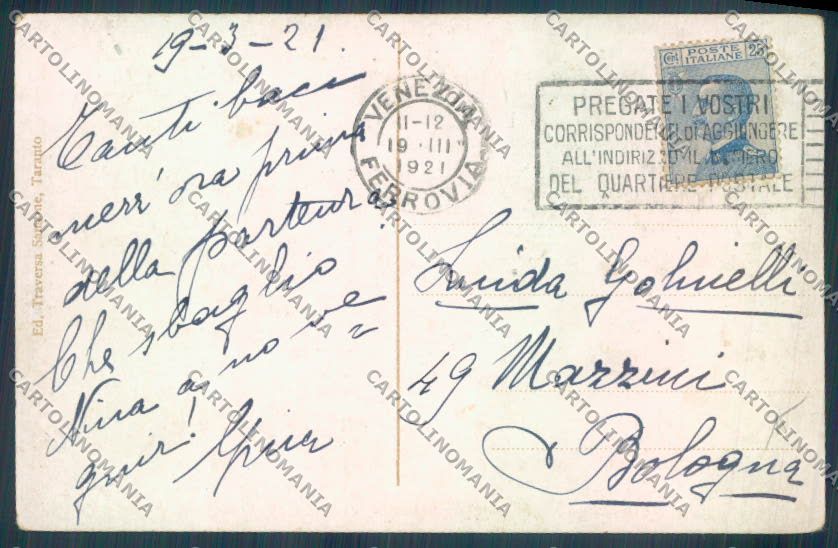 19-3-21.
Tanti baci
mezz'ora prima
della partenza
Che sbaglio
Nina a no ve
nir!
Ed. Traversa Taranto
VENEZIA
11-12
19 III
1921
FERROVIA
POSTE
ITALIANE
Cent 25
PREGATE I VOSTRI
CORRISPONDENTI DI AGGIUNGERE
ALL'INDIRIZZO IL NUMERO
DEL QUARTIERE POSTALE
Guida Golinelli
49 Mazzini
Bologna
CARTOLINOMANIA